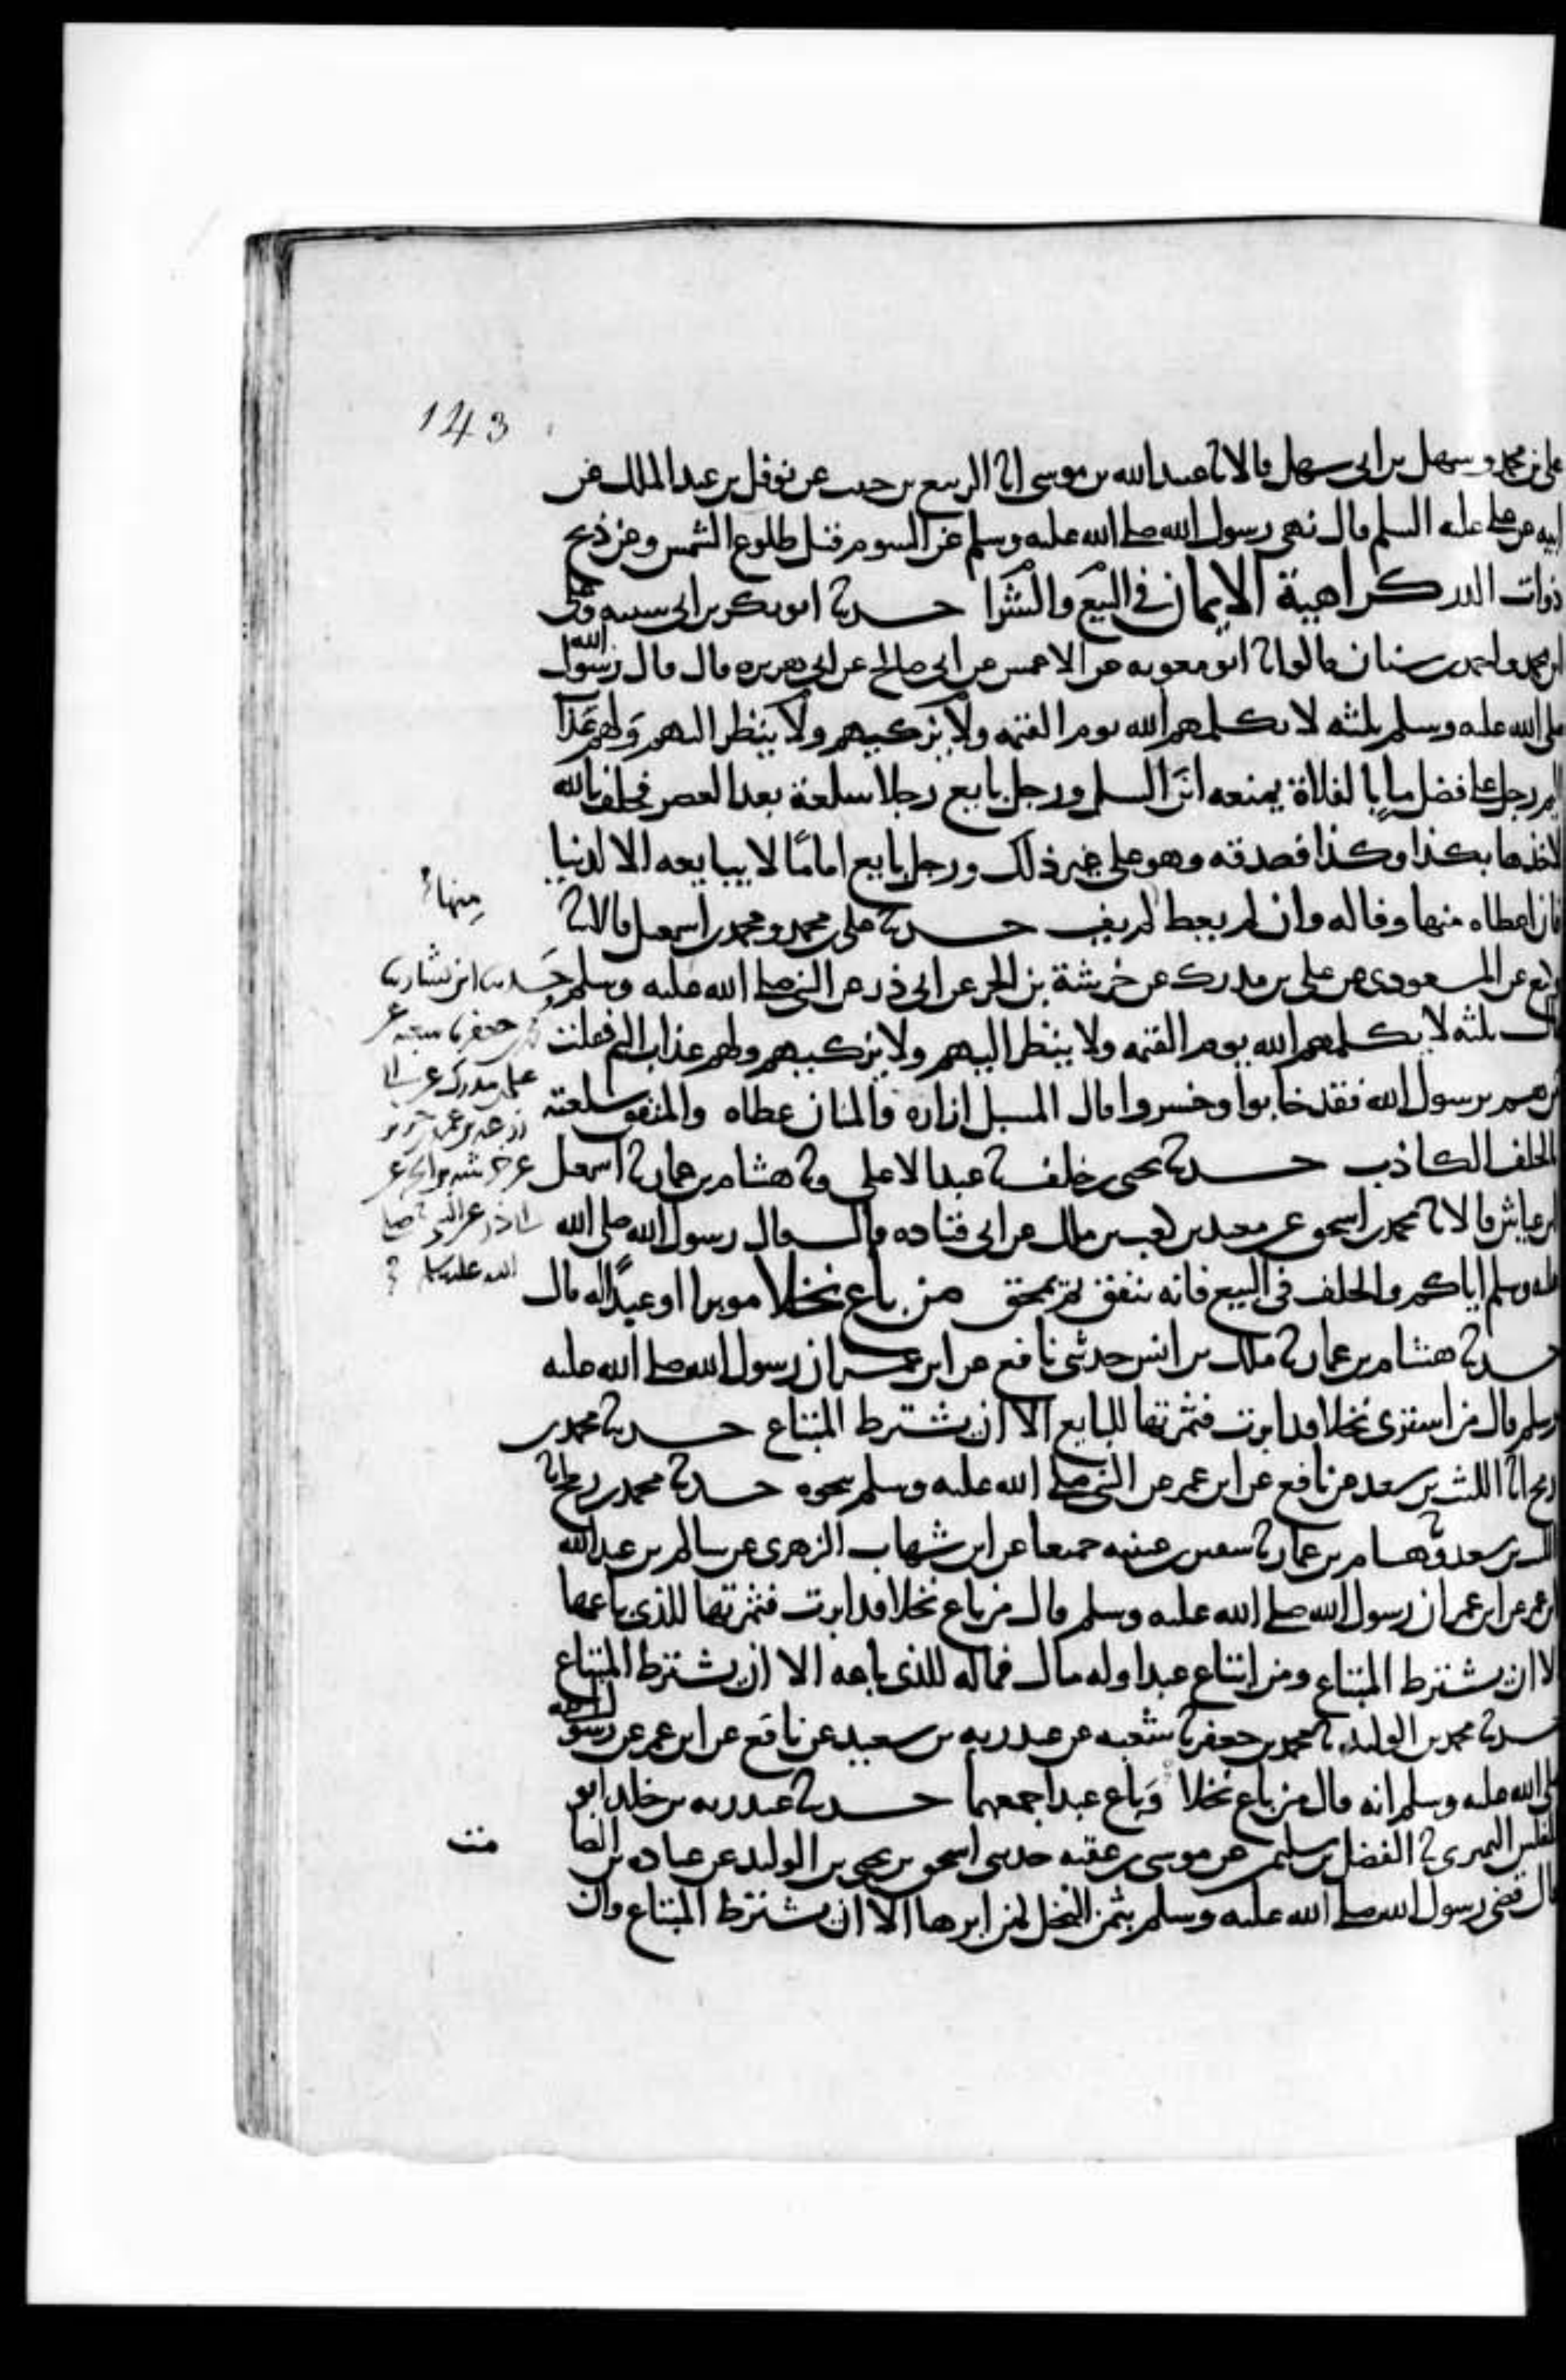 143
على بن محمد وسهل بن ابى سهل قالا نا عبيد الله بن موسى انا الربيع بن حبيب عن نوفل بن عبد الملك عن
ابيه عن على عليه السلم قال نهى رسول الله صلى الله عليه وسلم عن السوم قبل طلوع الشمس وعن ذبح
ذوات الدر كراهية الايمان فى البيع والشرا حدثنا ابو بكر بن ابى شيبه وعلى
ابن محمد واحمد بن سنان قالوا نا ابو معويه عن الاعمش عن ابى صالح عن ابى هريره قال قال رسول الله
صلى الله عليه وسلم ثلثه لا يكلمهم الله يوم القيمه ولا يزكيهم ولا ينظر اليهم ولهم عذا
اليم رجل على فضل ما بالفلاة يمنعه ابن السبيل ورجل بايع رجلا سلعة بعد العصر فحلف بالله
لاخذها بكذا وكذا فصدقه وهو على غير ذلك ورجل بايع اماما لا يبايعه الا لدنيا
فان اعطاه منها وفا له وان لم يعط لم يف حدثنا على بن محمد ومحمد بن اسمعيل قالا نا
منها
وكيع عن المسعودى عن على بن مدرك عن خرشة بن الحر عن ابى ذر عن النبى صلى الله عليه وسلم
قال ثلثه لا يكلمهم الله يوم القيمه ولا ينظر اليهم ولا يزكيهم ولهم عذاب اليم فقلت
من هم يرسول الله فقد خابوا وخسروا قال المسبل ازاره والمنان عطاه والمنفق سلعته
بالحلف الكاذب حدثنا يحيى بن خلف نا عبد الاعلى ونا هشام بن عمار نا اسمعيل
بن عياش قالا نا محمد بن اسحق عن معبد بن كعب بن مالك عن ابى قتاده قال قال رسول الله صلى الله
عليه وسلم اياكم والحلف فى البيع فانه ينفق ثم يمحق من باع نخلا موبرا او عبدا له مال
حدثنا ابن بشار نا
محمد بن جعفر نا شعبه عن
على بن مدرك عن ابى
زرعه بن عمرو بن جرير
عن خرشه بن الحر عن
ابى ذر عن النبى صلى
الله عليه وسلم
حدثنا هشام بن عمار نا ملك بن انس حدثنى نافع عن ابن عمر ان رسول الله صلى الله عليه
وسلم قال من اشترى نخلا قد ابرت فثمرتها للبايع الا ان يشترط المبتاع حدثنا محمد بن
رمح انا الليث بن سعد عن نافع عن ابن عمر عن النبى صلى الله عليه وسلم بنحوه حدثنا محمد بن رمح انا
الليث بن سعد ونا هشام بن عمار نا سفين بن عيينه جميعا عن ابن شهاب الزهرى عن سالم بن عبد الله
بن عمر عن ابن عمر ان رسول الله صلى الله عليه وسلم قال من باع نخلا قد ابرت فثمرتها للذى باعها
الا ان يشترط المبتاع ومن ابتاع عبدا وله مال فماله للذى باعه الا ان يشترط المبتاع
حدثنا محمد بن الوليد نا محمد بن جعفر نا شعبه عن عبد ربه بن سعيد عن نافع عن ابن عمر عن رسول الله
صلى الله عليه وسلم انه قال من باع نخلا وباع عبدا جمعهما حدثنا عبد ربه بن خلد ابو
المغلس النميرى نا الفضيل بن سليمن عن موسى بن عقبه حدثنى اسحق بن يحيى بن الوليد عن عباده بن الصا
مت
قال قضى رسول الله صلى الله عليه وسلم بثمر النخل لمن ابرها الا ان يشترط المبتاع وان